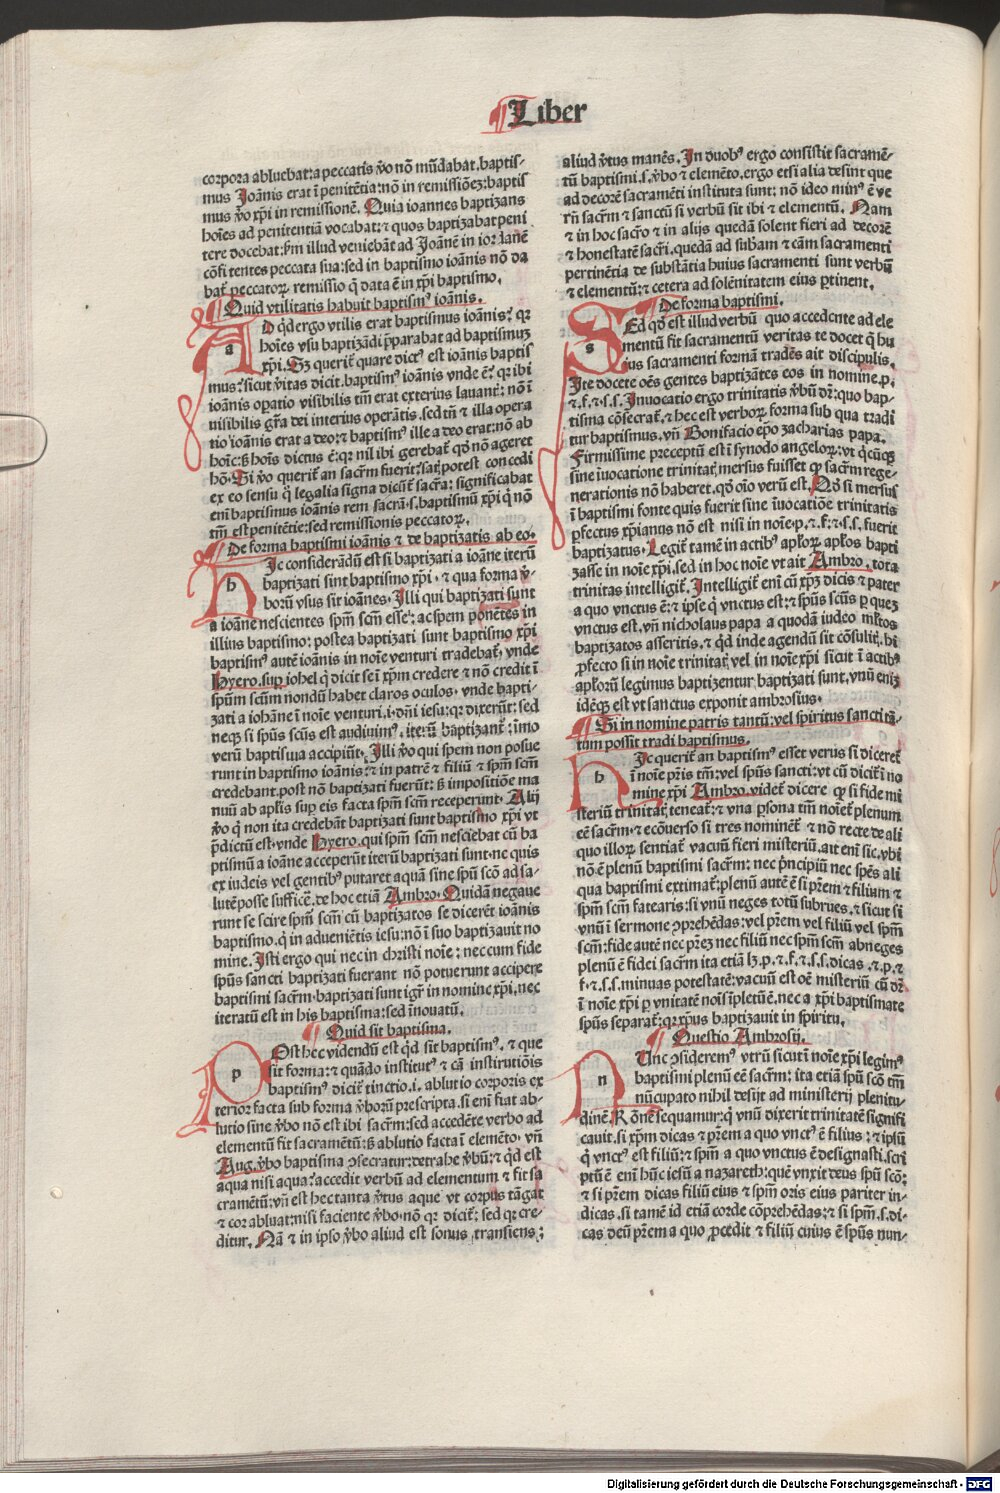 Liber
corpora abluebat: a peccatis v̄o nō mūdabat. baptis-
mus Joānis erat ī penitētia: nō in remissiōeȝ: baptis
mus v̄o xp̄i in remissionē. Quia ioannes baptizans
hoīes ad penitentiā vocabat: ⁊ quos baptizabat peni
tere docebat: ẜm illud veniebāt ad Joānē in iordanē
cōfitentes peccata sua: sed in baptismo ioānis nō da
bat᷑ peccatoꝝ remissio q̄ data ē in xp̄i baptismo.
Quid vtilitatis habuit baptismꝰ ioānis.
AD qͥd ergo vtilis erat baptismus ioānis? qꝛ
hoīes vsu baptizādi p̄parabat ad baptismuȝ
xp̄i. Sȝ querit᷑ quare dictꝰ est ioānis baptis
mus? sicut v̄itas dicit. baptismꝰ ioānis vnde ē? qꝛ ibi
ioānis oꝑatio visibilis tm̄ erat exterius lauant᷑: nō ī
uisibilis gr̄a dei interius operātis. sed tn̄ ⁊ illa opera
tio ioānis erat a deo: ⁊ baptismꝰ ille a deo erat: nō ab
hoīe: ẜ hoīs dictus ē: qꝛ nil ibi gerebat᷑ qd̄ nō ageret
hō. Si v̄o querit᷑ an sacr̄m fuerit? sat potest concedi
ex eo sensu qͦ legalia signa dicūt᷑ sacr̄a: significabat
enī baptismus ioānis rem sacrā .s. baptismū xp̄i q̄ nō
tm̄ est penitētie: sed remissionis peccatoꝝ.
De forma baptismi ioānis ⁊ de baptizatis ab eo.
HIc considerādū est si baptizati a ioāne iterū
baptizati sint baptismo xp̄i. ⁊ qua forma v̄-
borū vsus sit ioānes. Illi qui baptizati sunt
a ioāne nescientes spm̄ scm̄ esse: ac spem ponētes in
illius baptismo: postea baptizati sunt baptismo xp̄i
baptismꝰ autē ioānis in noīe venturi tradebat᷑. vnde
Hyero. suꝑ iohel q̄ dicit se ī xp̄m credere ⁊ nō credit ī
spūm scūm nondū habet claros oculos. vnde bapti-
zati a iohāne ī noīe venturi .i. dn̄i iesu: qꝛ dixerūt: sed
neqꝫ si spūs scūs est audiuimꝰ. iterū baptizant᷑: imo
verū baptisma accipiūt. Illi v̄o qui spem non posue
runt in baptismo ioānis: ⁊ in patrē ⁊ filiū ⁊ spm̄ scm̄
credebant. post nō baptizati fuerūt: ẜ impositiōe ma
nuū ab apl̄is suꝑ eis facta spm̄ scm̄ receperunt. Alij
v̄o q̄ non ita credebāt baptizati sunt baptismo xp̄i vt
p̄dictū est. vnde Hyero. qui spm̄ scm̄ nesciebat cū ba
ptismū a ioāne acceperūt iterū baptizati sunt. ne quis
ex iudeis vel gentibꝰ putaret aquā sine spū scō ad sa-
lutē posse sufficē. de hoc etiā Ambro. Quidā negaue
runt se scire spm̄ scm̄ cū baptizatos se dicerēt ioānis
baptismo. q̄ in adueniētis iesu: nō ī suo baptizauit no
mine. Isti ergo qui nec in christi noīe: nec cum fide
spūs sancti baptizati fuerant nō potuerunt accipere
baptismi sacr̄m. baptizati sunt igr̄ in nomine xp̄i. nec
iteratū est in his baptisma: sed īnouatū.
Quid sit baptisma.
POst hec videndū est qͥd sit baptismꝰ. ⁊ que
sit forma: ⁊ quādo institutꝰ ⁊ cā institutiōis
baptismꝰ dicit᷑ tinctio .i. ablutio corporis ex
terior facta sub forma v̄borū prescripta. si enī fiat ab-
lutio sine v̄bo nō est ibi sacr̄m: sed accedēte verbo ad
elementū fit sacramētū: ẜ ablutio facta ī elemēto. vn̄
Aug. v̄bo baptisma ↄsecratur: detrahe v̄bū: ⁊ qͥd est
aqua nisi aqua? accedit verbū ad elementum ⁊ fit sa
cramētū: vn̄ est hec tanta v̄tus aque vt corpus tāgat
⁊ cor abluat: nisi faciente v̄bo. nō qꝛ dicit᷑: sed qꝛ cre-
ditur. Nā ⁊ in ipso v̄bo aliud est sonus transiens:
aliud v̄tus manēs. In duobꝰ ergo consistit sacramē-
tū baptismi .s. v̄bo ⁊ elemēto. ergo etsi alia desint que
ad decorē sacramēti instituta sunt: nō ideo minꝰ ē ve
rū sacr̄m ⁊ sanctū si verbū sit ibi ⁊ elementū. Nam
⁊ in hoc sacr̄o ⁊ in alijs quedā solent fieri ad decorē
⁊ honestatē sacr̄i. quedā ad sub̄am ⁊ cām sacramenti
pertinētia de substātia huius sacramenti sunt verbū
⁊ elementū: ⁊ cetera ad solēnitatem eius ꝑtinent.
De forma baptismi.
SEd qd̄ est illud verbū quo accedente ad ele
mentū fit sacramentū veritas te docet q̄ hu
ius sacramenti formā tradēs ait discipulis.
Ite docete oēs gentes baptizātes eos in nomine .p.
⁊ .f. ⁊ .s. s. Inuocatio ergo trinitatis v̄bū dr̄: quo bap-
tisma cōsecrat᷑. ⁊ hec est verboꝝ forma sub qua tradi
tur baptismus. vn̄ Bonifacio ep̄o zacharias papa.
Firmissime preceptū est ī synodo angeloꝝ: vt qͥcūqꝫ
sine īuocatione trinitat᷑ mersus fuisset ꝙ sacr̄m rege-
nerationis nō haberet. qd̄ oīo verū est. Qd̄ si mersus
ī baptismi fonte quis fuerit sine īuocatiōe trinitatis
ꝑfectus xp̄ianus nō est nisi in noīe .p. ⁊ .f. ⁊ .s. s. fuerit
baptizatus. Legit᷑ tamē in actibꝰ apl̄oꝝ apl̄os bapti
zasse in noīe xp̄i. sed in hoc noīe vt ait Ambro. tota
trinitas intelligit᷑. Intelligit᷑ enī cū xp̄ȝ dicis ⁊ pater
a quo vnctus ē: ⁊ ipse q̄ vnctus est: ⁊ spūs scūs ꝑ quez
vnctus est. vn̄ nicholaus papa a quodā iudeo ml̄tos
baptizatos asseritis. ⁊ qͥd inde agendū sit cōsulit᷑. hi
ꝓfecto si in noīe trinitat᷑ vel in noīe xp̄i sicut ī actibꝰ
apl̄orū legimus baptizentur baptizati sunt. vnū eniȝ
idēqꝫ est vt sanctus exponit ambrosius.
Si in nomine patris tantū: vel spiritus sancti tā-
tum possit tradi baptismus.
HIc querit᷑ an baptismꝰ esset verus si diceret᷑
ī noīe pr̄is tm̄: vel spūs sancti: vt cū dicit᷑ ī no
mine xp̄i Ambro. videt᷑ dicere ꝙ si fide mi
steriū trinitat᷑ teneat᷑: ⁊ vna ꝑsona tm̄ noīet᷑ plenum
eē sacr̄m. ⁊ ecōuerso si tres nominēt᷑ ⁊ nō recte de ali
quo illoꝝ sentiat᷑ vacuū fieri misteriū. ait enī sic. vbi
nō ē plenū baptismi sacr̄m: nec p̄ncipiū nec spēs ali
qua baptismi extimat᷑: plenū autē ē si pr̄em ⁊ filium ⁊
spm̄ scm̄ fatearis: si vnū neges totū subrues. ⁊ sicut si
vnū ī sermone ↄprehēdas: vel pr̄em vel filiū vel spm̄
scm̄: fide autē nec pr̄eȝ nec filiū nec spm̄ scm̄ abneges
plenū ē fidei sacr̄m ita etiā lȝ .p. ⁊ .f. ⁊ .s. s. dicas. ⁊ .p. ⁊
f. ⁊ .s. s. minuas potestatē: vacuū est oē misteriū cū dr̄
ī noīe xp̄i ꝑ vnitatē noīs īpletū ē. nec a xp̄i baptismate
spūs separat᷑: qꝛ xp̄us baptizauit in spiritu.
Questio Ambrosij.
NUnc ↄsideremꝰ vtrū sicut ī noīe xp̄i legimꝰ
baptismi plenū eē sacr̄m: ita etiā spū scō tm̄
nūcupato nihil desijt ad ministerij plenitu-
dinē. Rōnē sequamur: q̄ vnū dixerit trinitatē signifi
cauit. si xp̄m dicas ⁊ pr̄em a quo vnctꝰ ē filius: ⁊ ipsū
q̄ vnctꝰ est filiū: ⁊ spm̄ a quo vnctus ē designasti. scri
ptū ē enī hūc iesū a nazareth: quē vnxit deus spū scō:
⁊ si pr̄em dicas filiū eius ⁊ spm̄ oris eius pariter in-
dicas. si tamē id etiā corde cōprehēdas: ⁊ si spm̄ .s. di-
cas deū pr̄em a quo ꝓcedit ⁊ filiū cuius ē spūs nun-
a
b
p
s
h
n
Digitalisierung gefördert durch die Deutsche Forschungsgemeinschaft - DFG